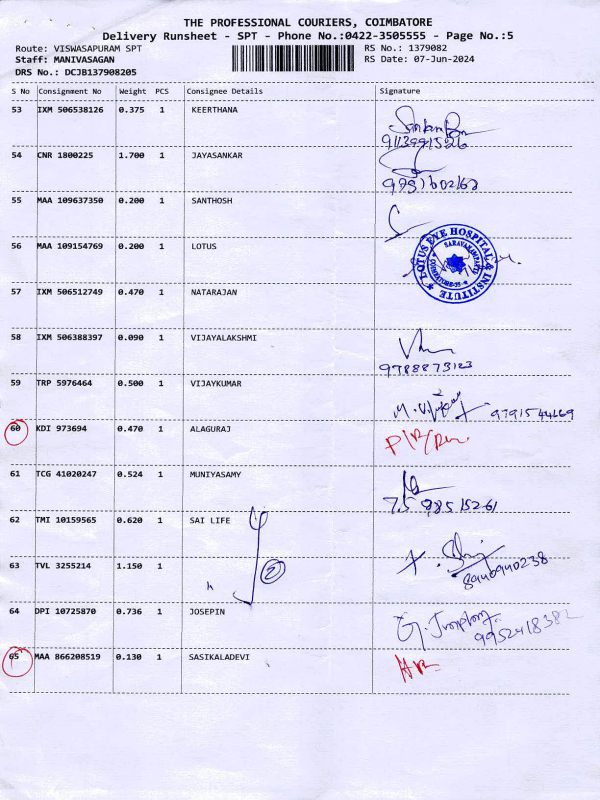 THE PROFESSIONAL COURIERS, COIMBATORE
Delivery Runsheet - SPT - Phone No.:0422-3505555 - Page No.:5
Route: VISWASAPURAM SPT
RS No.: 1379082
Staff: MANIVASAGAN
RS Date: 07-Jun-2024
DRS No.: DCJB137908205
S No Consignment No Weight PCS Consignee Details Signature
53 IXM 506538126 0.375 1 KEERTHANA
54 CNR 1800225 1.700 1 JAYASANKAR
55 MAA 109637350 0.200 1 SANTHOSH
56 MAA 109154769 0.200 1 LOTUS
LOTUS EYE HOSPITAL & INSTITUTE
57 IXM 506512749 0.470 1 NATARAJAN
58 IXM 506388397 0.090 1 VIJAYALAKSHMI
9788873123
59 TRP 5976464 0.500 1 VIJAYKUMAR
9791544669
60 KDI 973694 0.470 1 ALAGURAJ
61 TCG 41020247 0.524 1 MUNIYASAMY
62 TMI 10159565 0.620 1 SAI LIFE
63 TVL 3255214 1.150 1
②
8940940238
64 DPI 10725870 0.736 1 JOSEPIN
9952418382
65 MAA 866208519 0.130 1 SASIKALADEVI